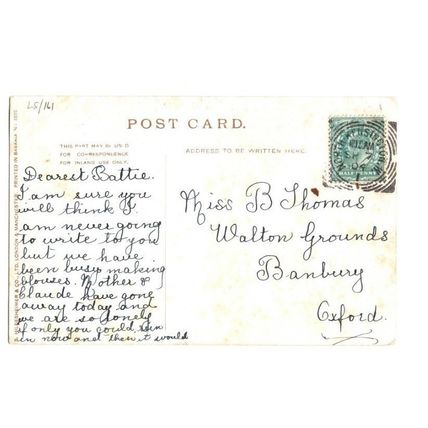 L5/161
POST CARD.
THIS PART MAY BE USED
FOR CORRESPONDENCE
FOR INLAND USE ONLY.
ADDRESS TO BE WRITTEN HERE.
HALF PENNY
Dearest Battie.
I am sure you
will think I
am never going
to write to you
but we have
been busy making
blouses. Mother &
Claude have gone
away today and
we are so lonely
if only you could run
in now and then it would
Miss B Thomas
Walton Grounds
Banbury
Oxford.
& CO., LTD. LONDON & MANCHESTER. PRINTED IN BAVARIA